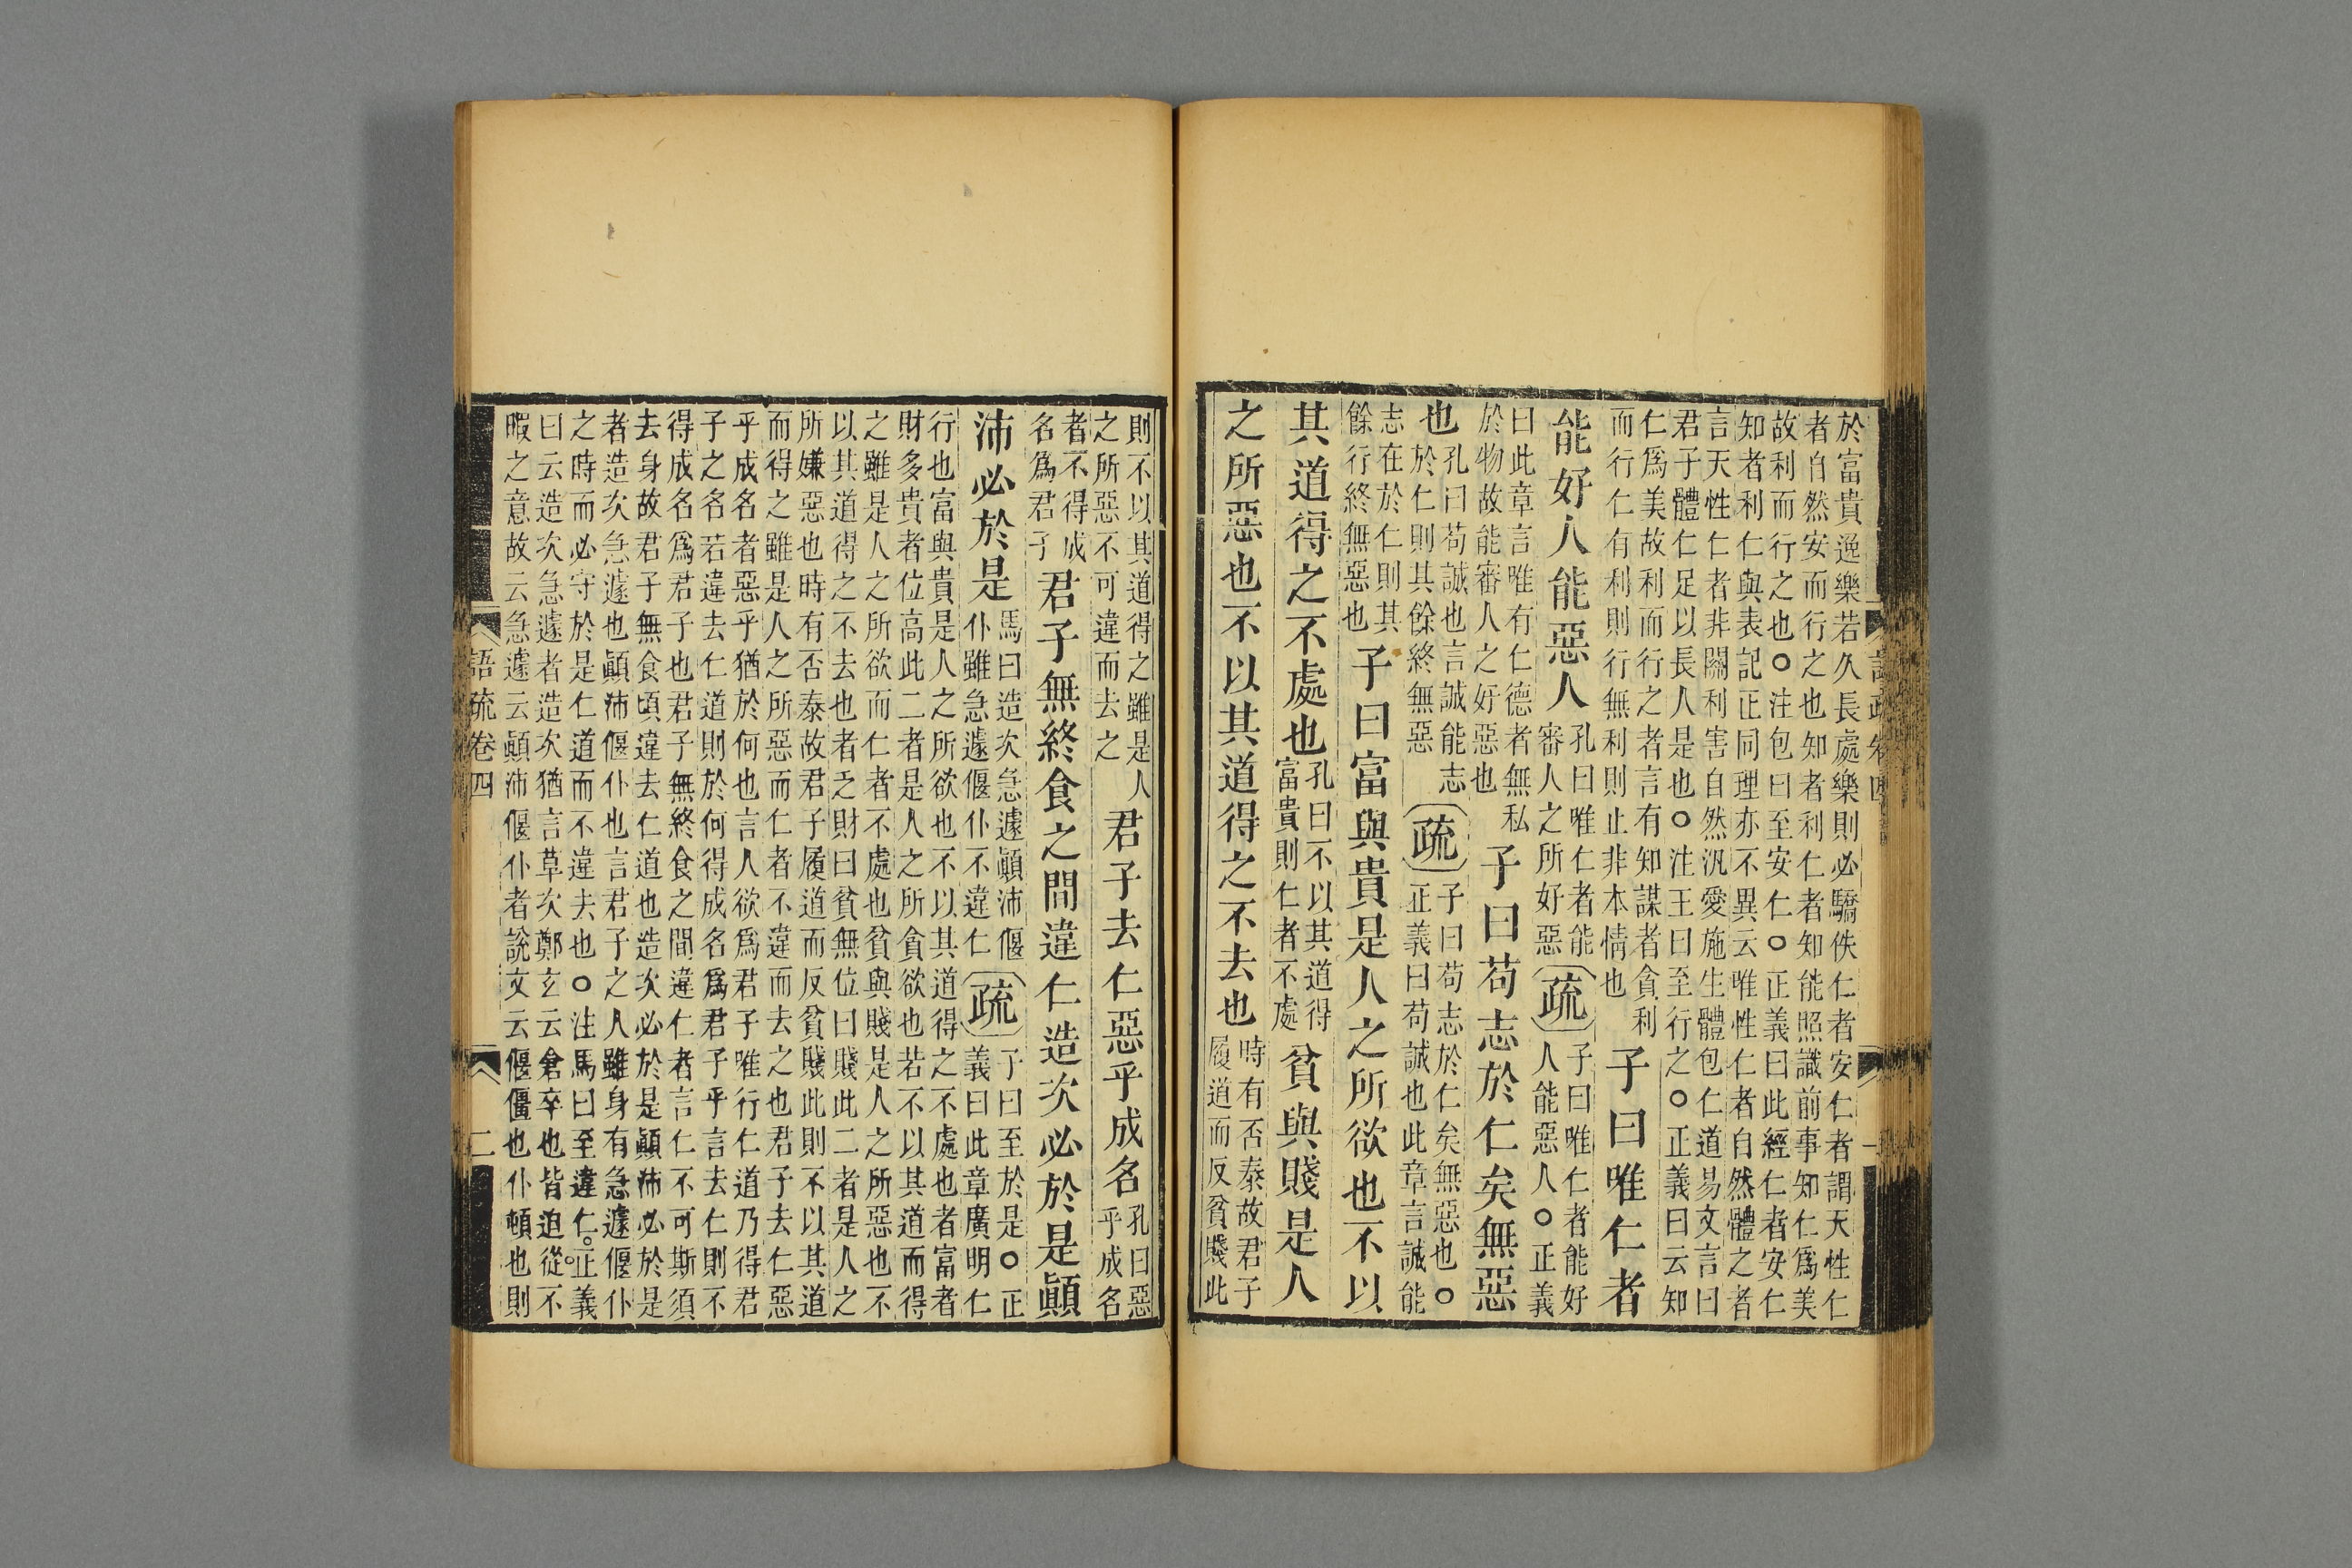 於富貴逸樂若久長處樂則必驕佚仁者安仁者謂天性仁
者自然安而行之也知者利仁者知能照識前事知仁爲美
故利而行之也○注包曰至安仁○正義曰此經仁者安仁
知者利仁與表記正同理亦不異云唯性仁者自然體之者
言天性仁者非關利害自然汎愛施生體包仁道易文言曰
君子體仁足以長人是也○注王曰至行之○正義曰云知
仁爲美故利而行之者言有知謀者貪利
而行仁有利則行無利則止非本情也
子曰唯仁者
能好人能惡人
孔曰唯仁者能
審人之所好惡
疏
子曰唯仁者能好
人能惡人○正義
曰此章言唯有仁德者無私
於物故能審人之好惡也
子曰苟志於仁矣無惡
也
孔曰苟誠也言誠能志
於仁則其餘終無惡
疏
子曰苟志於仁矣無惡也○
正義曰苟誠也此章言誠能
志在於仁則其
餘行終無惡也
子曰富與貴是人之所欲也不以
其道得之不處也
孔曰不以其道得
富貴則仁者不處
貧與賤是人
之所惡也不以其道得之不去也
時有否泰故君子
履道而反貧賤此
則不以其道得之雖是人
之所惡不可違而去之
君子去仁惡乎成名
孔曰惡
乎成名
者不得成
名爲君子
君子無終食之間違仁造次必於是顚
沛必於是
馬曰造次急遽顚沛偃
仆雖急遽偃仆不違仁
疏
子曰至於是○正
義曰此章廣明仁
行也富與貴是人之所欲也不以其道得之不處也者富者
財多貴者位高此二者是人之所貪欲也若不以其道而得
之雖是人之所欲而仁者不處也貧與賤是人之所惡也不
以其道得之不去也者乏財曰貧無位曰賤此二者是人之
所嫌惡也時有否泰故君子履道而反貧賤此則不以其道
而得之雖是人之所惡而仁者不違而去之也君子去仁惡
乎成名者惡乎猶於何也言人欲爲君子唯行仁道乃得君
子之名若違去仁道則於何得成名爲君子乎言去仁則不
得成名爲君子也君子無終食之間違仁者言仁不可斯須
去身故君子無食頃違去仁道也造次必於是顚沛必於是
者造次急遽也顚沛偃仆也言君子之人雖身有急遽偃仆
之時而必守於是仁道而不違去也○注馬曰至違仁○正義
曰云造次急遽者造次猶言草次鄭玄云倉卒也皆迫從不
暇之意故云急遽云顚沛偃仆者說文云偃僵也仆頓也則
語疏卷四
二